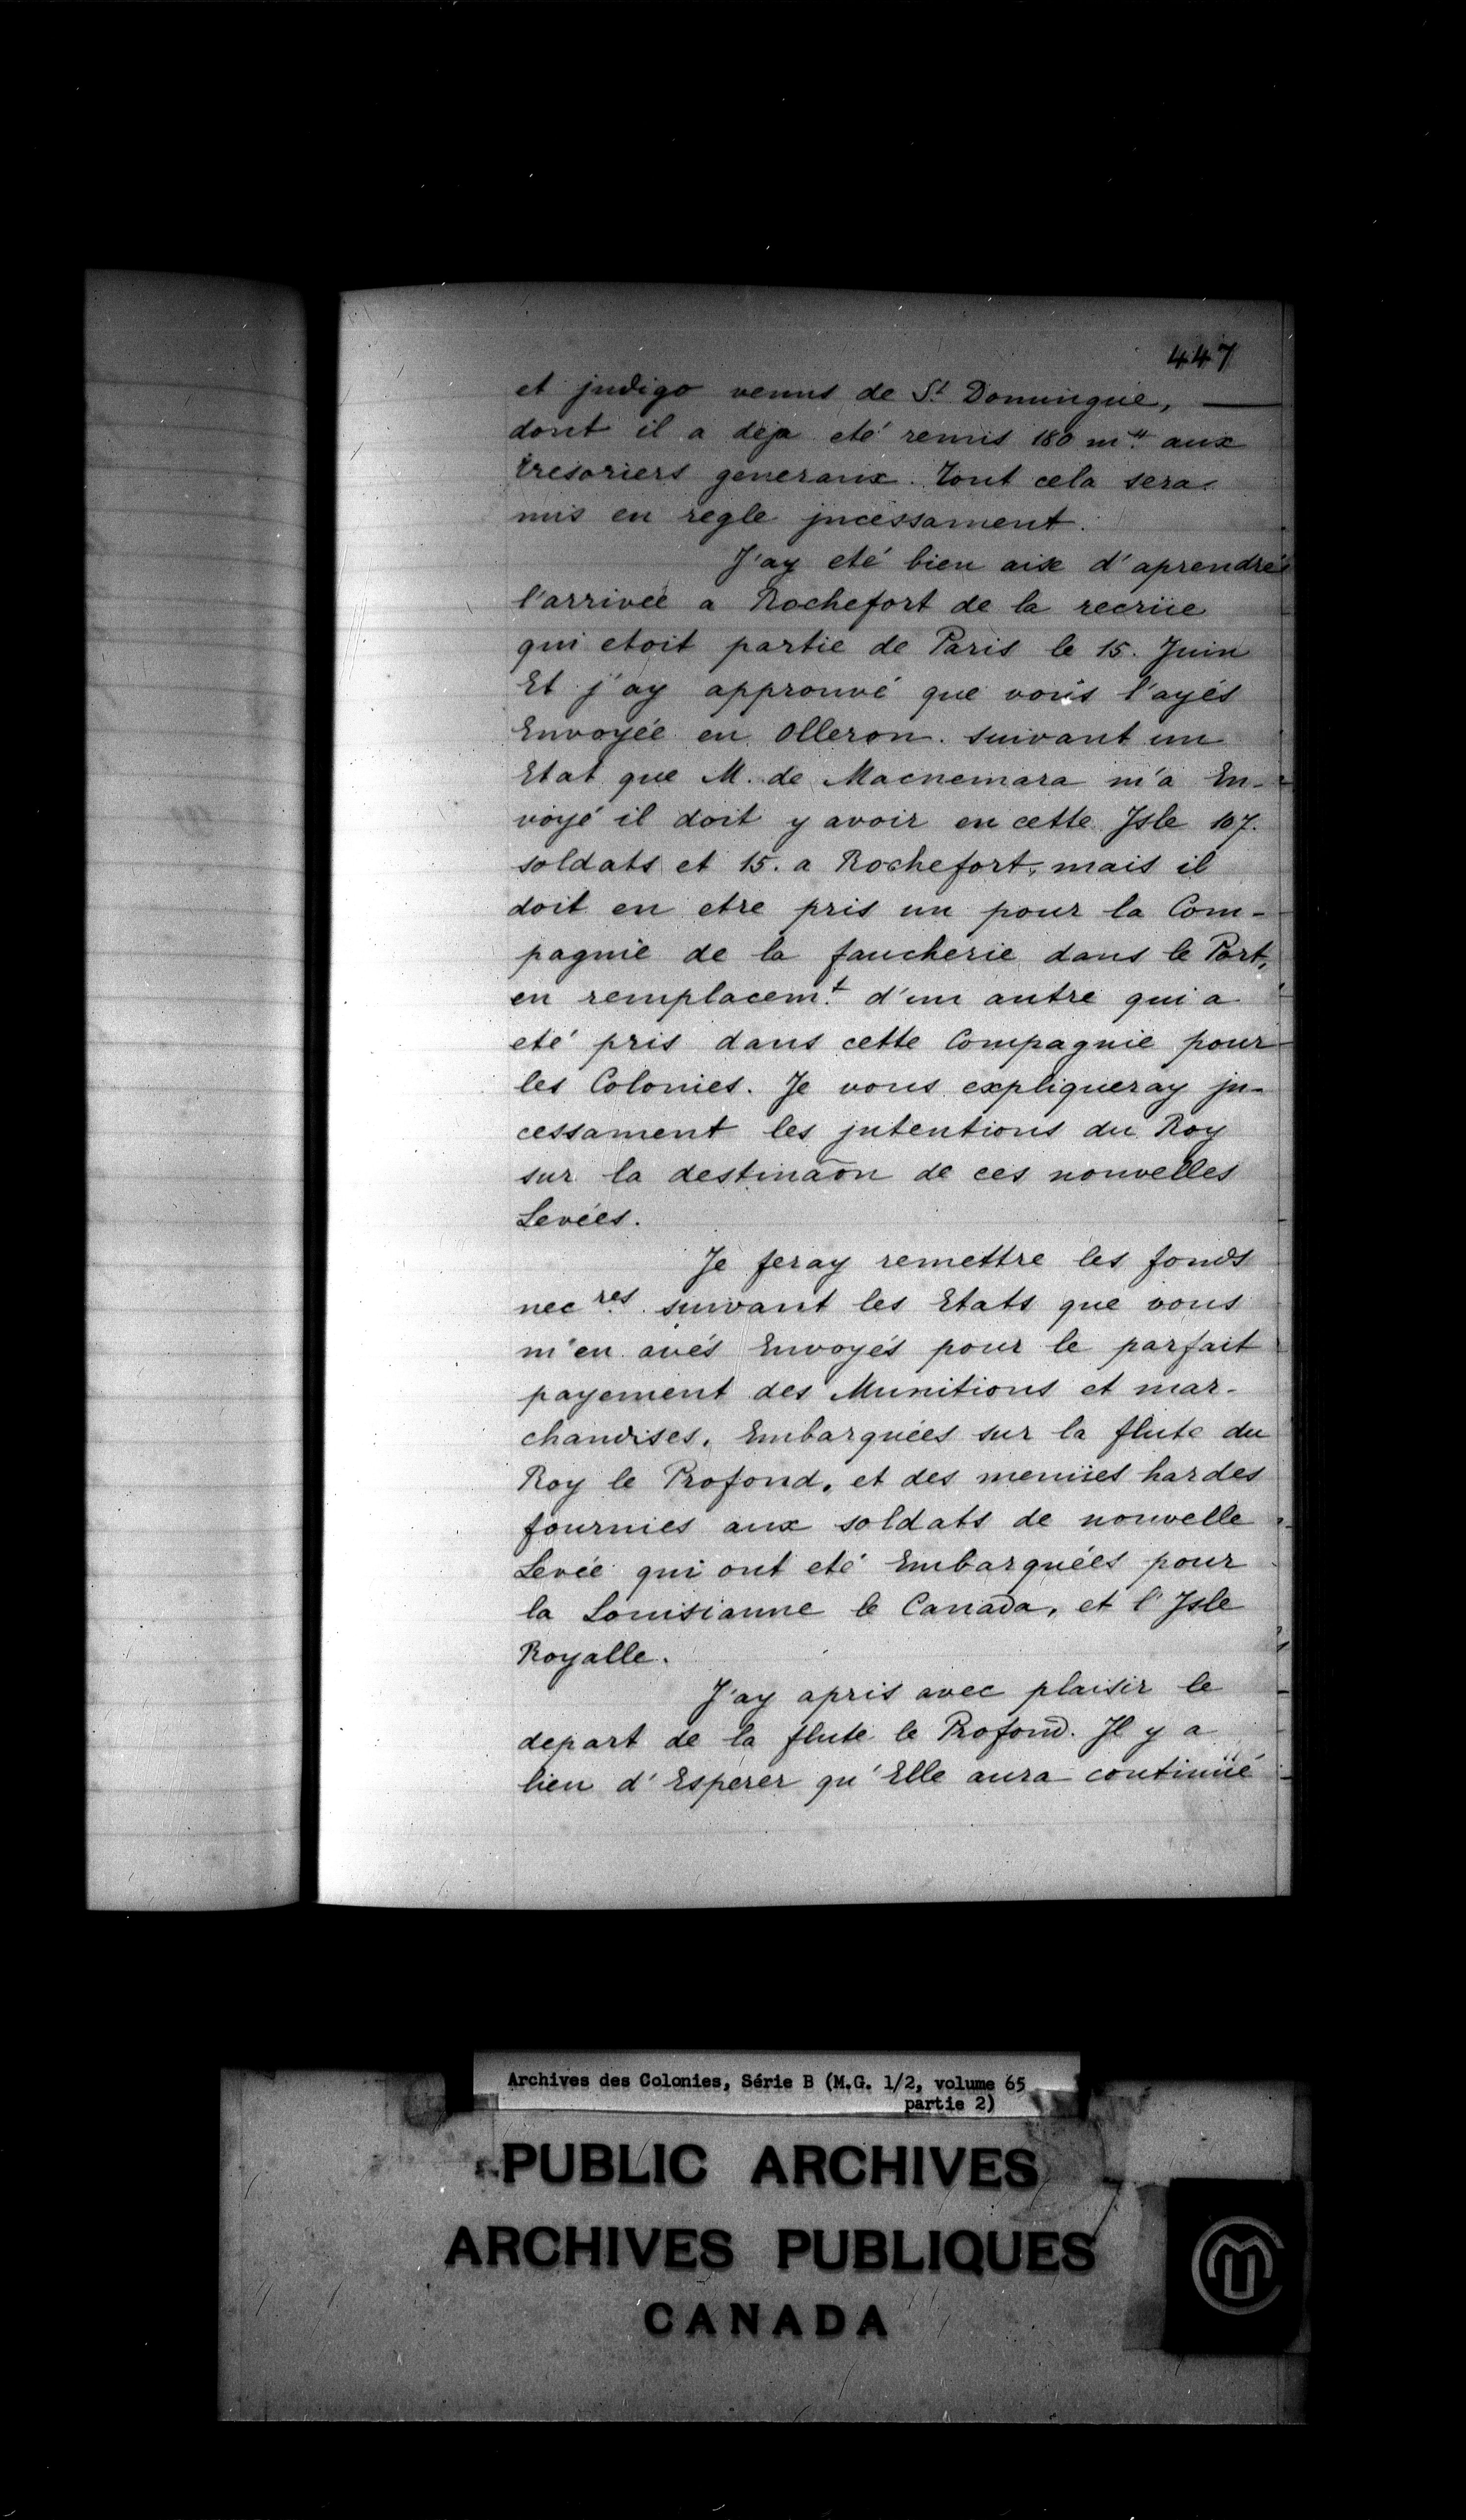 447
et jndigo venus de St Domingue,
dont il a deja eté remis 180 m.ᵗᵗ aux
tresoriers generaux. Tout cela sera
mis en regle jncessament.
J'ay eté bien aise d'aprendre
l'arrivée a Rochefort de la recrüe
qui etoit partie de Paris le 15. Juin
Et j'ay approuvé que vous l'ayés
Envoyée en Olleron. suivant un
Etat que M. de Macnemara m'a En-
voyé il doit y avoir en cette Jsle 107.
soldats et 15. a Rochefort, mais il
doit en etre pris un pour la Com-
pagnie de la faucherie dans le Port,
en remplacem.t d'un autre qui a
eté pris dans cette Compagnie pour
les Colonies. Je vous expliqueray jn-
cessament les jntentions du Roy
sur la destinãon de ces nouvelles
Levées.
Je feray remettre les fonds
necres. suivant les Etats que vous
m'en avés Envoyés pour le parfait
payement des Munitions et mar-
chandises, Embarquées sur la flute du
Roy le Profond, et des menües hardes
fournies aux soldats de nouvelle
Levée qui ont eté Embarquées pour
la Louisianne le Canada, et l'Jsle
Royalle.
J'ay apris avec plaisir le
depart de la flute le Profond. Jl y a
lieu d'Esperer qu'Elle aura continüé
Archives des Colonies, Série B (M.G. 1/2, volume 65
partie 2)
PUBLIC ARCHIVES
ARCHIVES PUBLIQUES
CANADA